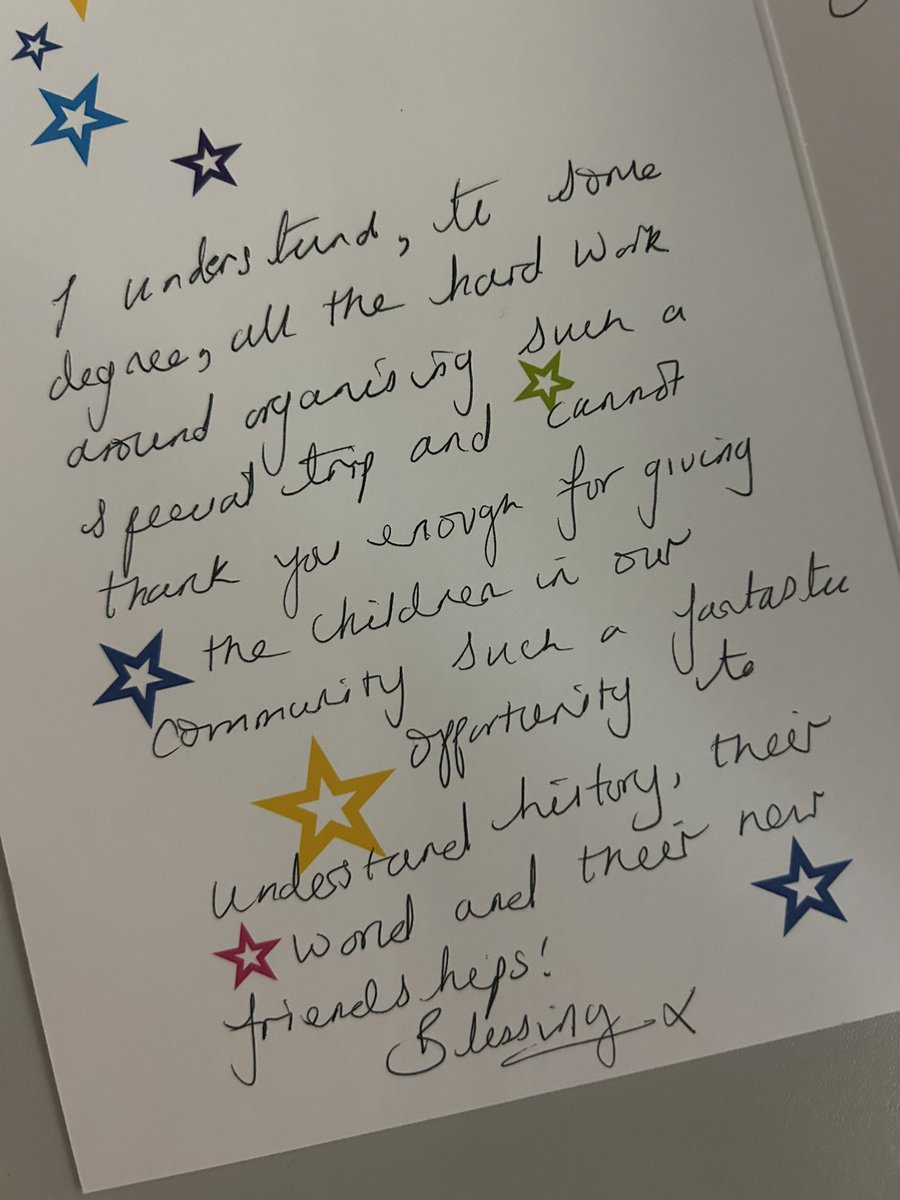 I understand, to some
degree, all the hard work
around organising such a
special trip and cannot
thank you enough for giving
the children in our
community such a fantastic
opportunity to
understand history, their
world and their new
friendships!
Blessing x